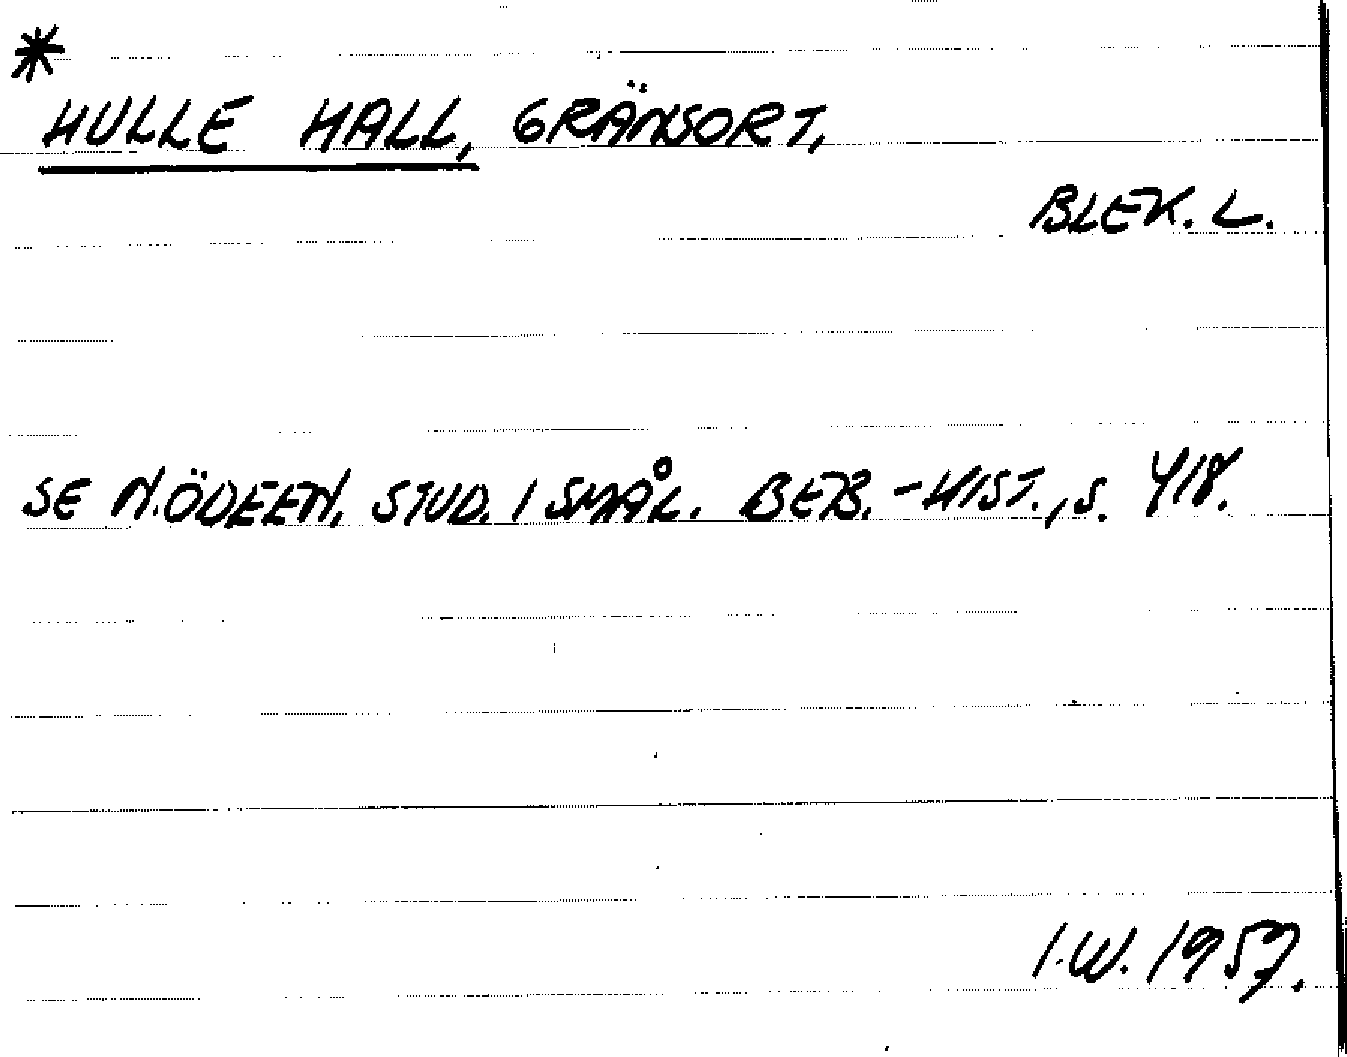 *
HULLE HALL, GRÄNSORT,
BLEK. L.
SE N. ÖDEEN, STUD. I SMÅL. BEB.-HIST., S. 418.
I.W. 1957.